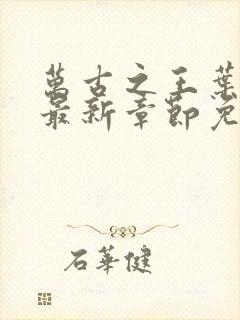 萬古之王葉
最新章節免
石華健